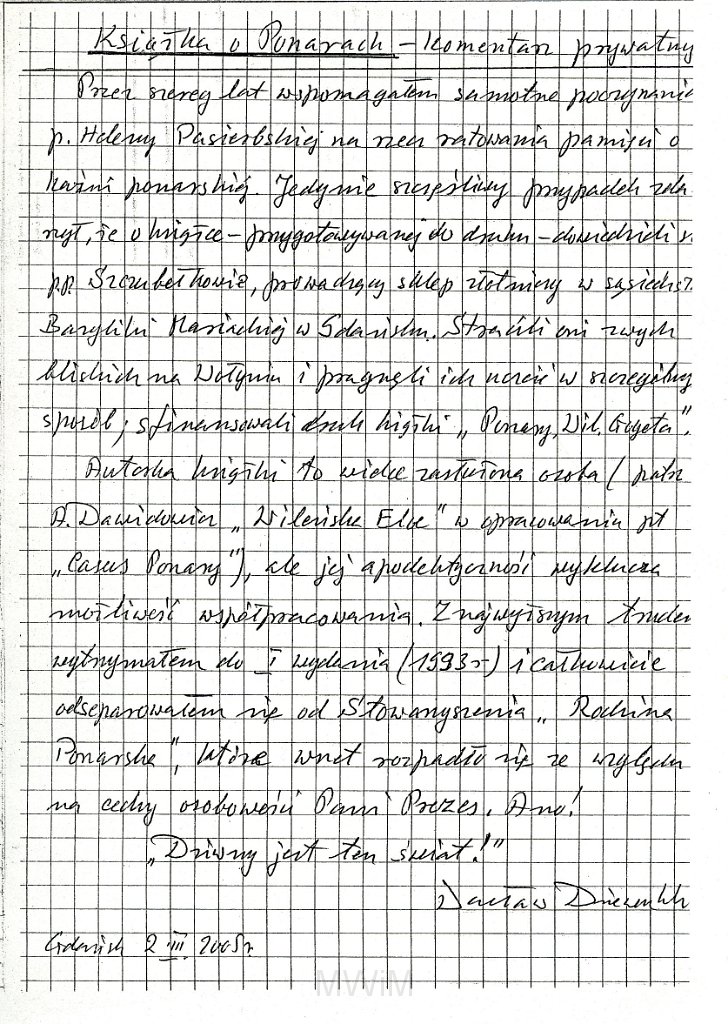 Książka o Ponarach – komentarz prywatny
Przez szereg lat wspomagałem samotne poczynania
p. Heleny Pasierbskiej na rzecz ratowania pamięci o
kaźni ponarskiej. Jedynie szczęśliwy przypadek zda
rzył, że o książce – przygotowywanej do druku – dowiedzieli s.
p.p. Szczubełkowie, prowadzący sklep złotniczy w sąsiedzt.
Bazyliki Mariackiej w Gdańsku. Stracili oni swych
bliskich na Wołyniu i pragnęli ich uczcić w szczególny
sposób; sfinansowali druk książki „Ponary, Wil. Golgota”.
Autorka książki to wielce zasłużona osoba (patrz
A. Dawidowicz „Wileńska Elce” w opracowaniu pt
„Casus Ponary”), ale jej apodyktyczność wyklucza
możliwość współpracowania. Z najwyższym trudem
wytrzymałem do I wydania (1993r) i całkowicie
odseparowałem się od Stowarzyszenia „Rodzina
Ponarska”, które wnet rozpadło się ze względu
na cechy osobowości Pani Prezes. Ano!
„Dziwny jest ten świat!”
Wacław
Gdańsk 2 III 2005r.
MWiM